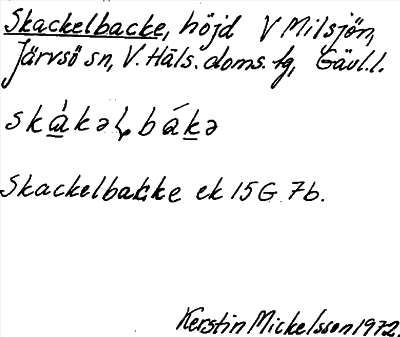 Skackelbacke, höjd V Milsjön,
Järvsö sn, V. Häls. doms. tg, Gävl.l.
skàkəɭbákə
Skackelbacke ek 15G 7b.
Kerstin Mickelsson 1972.